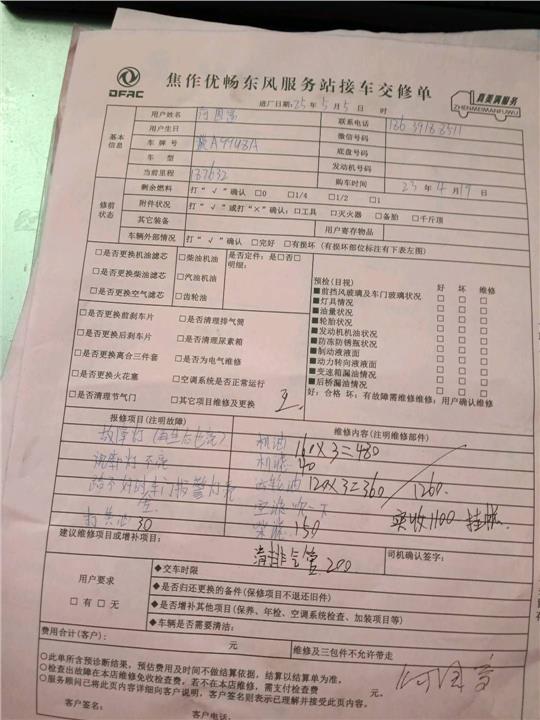 DFAC
焦作优畅东风服务站接车交修单
真美满服务
ZHENMEIMANFUWU
进厂日期: 25 年 5 月 5 日 时
基本信息
用户姓名
联系电话
用户生日
微信号码
车牌号
底盘号码
车型
发动机号码
当前里程 137632
购车时间 23 年 4 月 19 日
修前状态
剩余燃料 打“√”确认 □0 □1/4 □1/2 □1
附件状况 打“√”或打“×”确认:□工具 □灭火器 □备胎 □千斤顶
其它装备
用户寄存物品
车辆外部情况 打“√”确认 □完好 □有损坏(有损坏部位标注有下表左图)
□是否更换机油滤芯 □柴油机油 是否定件:是□否□
明细:
□是否更换柴油滤芯 □汽油机油
□是否更换空气滤芯 □齿轮油
□是否更换前刹车片 □是否清理排气筒
□是否更换后刹车片 □是否清理尿素箱
□是否更换离合三件套 □是否为电气维修
□是否更换火花塞 □空调系统是否正常运行
□是否清理节气门 □其它项目维修及更换
预检(目视) 好 坏 维修
■前挡风玻璃及车门玻璃状况 □ □ □
■灯具情况 □ □ □
■油量状况 □ □ □
■轮胎状况 □ □ □
■发动机机油状况 □ □ □
■防冻防锈瓶状况 □ □ □
■制动液液面 □ □ □
■动力转向液液面 □ □ □
■变速箱漏油情况 □ □ □
■后桥漏油情况 □ □ □
好:合格 坏:有故障需维修维修:用户确认维修
王
报修项目(注明故障)
维修内容(注明维修部件)
故障灯
机油 160×3=480
灯不亮
机滤 40
齿轮油 120×3=360
1260
空滤 吹一下
实收1100 挂账
30
柴滤 150
建议维修项目或增补项目:
清排气管 200
司机确认签字:
用户要求
□有 □无
◆交车时限
◆是否归还更换的备件(保修项目不退还旧件)
◆是否增补其他项目(保养、年检、空调系统检查、加装项目等)
◆车辆是否需要清油:
费用合计(客户): 元
维修及三包件不允许带走
○此单所含预诊断结果,预估费用及时间不做结算依据,结算以结算单为准。
○检查出故障在本店维修免收检查费,若不在本店维修,需支付检查费 元。
○服务顾问已将此页内容详细向客户说明,客户签名则表示已理解并接受此页内容。
客户签名:
客户电话: